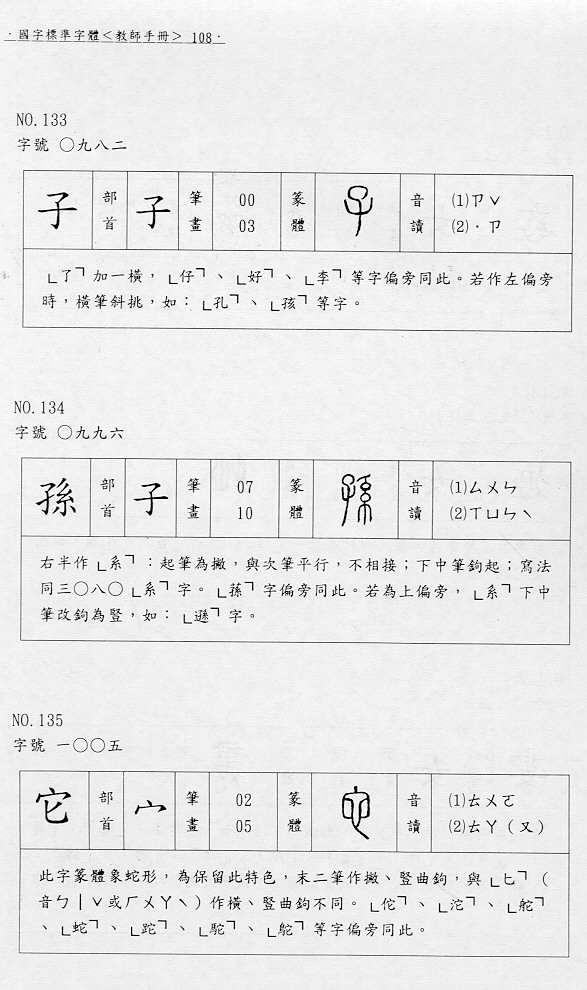 ．國字標準字體＜教師手冊＞ 108．
NO.133
字號 ○九八二
子 部首 子 筆畫 00 03 篆體 音讀 (1)ㄗˇ (2)˙ㄗ
「了」加一橫，「仔」、「好」、「李」等字偏旁同此。若作左偏旁
時，橫筆斜挑，如：「孔」、「孩」等字。
NO.134
字號 ○九九六
孫 部首 子 筆畫 07 10 篆體 音讀 (1)ㄙㄨㄣ (2)ㄒㄩㄣˋ
右半作「系」：起筆為撇，與次筆平行，不相接；下中筆鉤起；寫法
同三○八○「系」字。「蓀」字偏旁同此。若為上偏旁，「系」下中
筆改鉤為豎，如：「遜」字。
NO.135
字號 一○○五
它 部首 宀 筆畫 02 05 篆體 音讀 (1)ㄊㄨㄛ (2)ㄊㄚ（又）
此字篆體象蛇形，為保留此特色，末二筆作撇、豎曲鉤，與「匕」（
音ㄅㄧˇ或ㄏㄨㄚˋ）作橫、豎曲鉤不同。「佗」、「沱」、「舵」
、「蛇」、「跎」、「駝」、「鴕」等字偏旁同此。